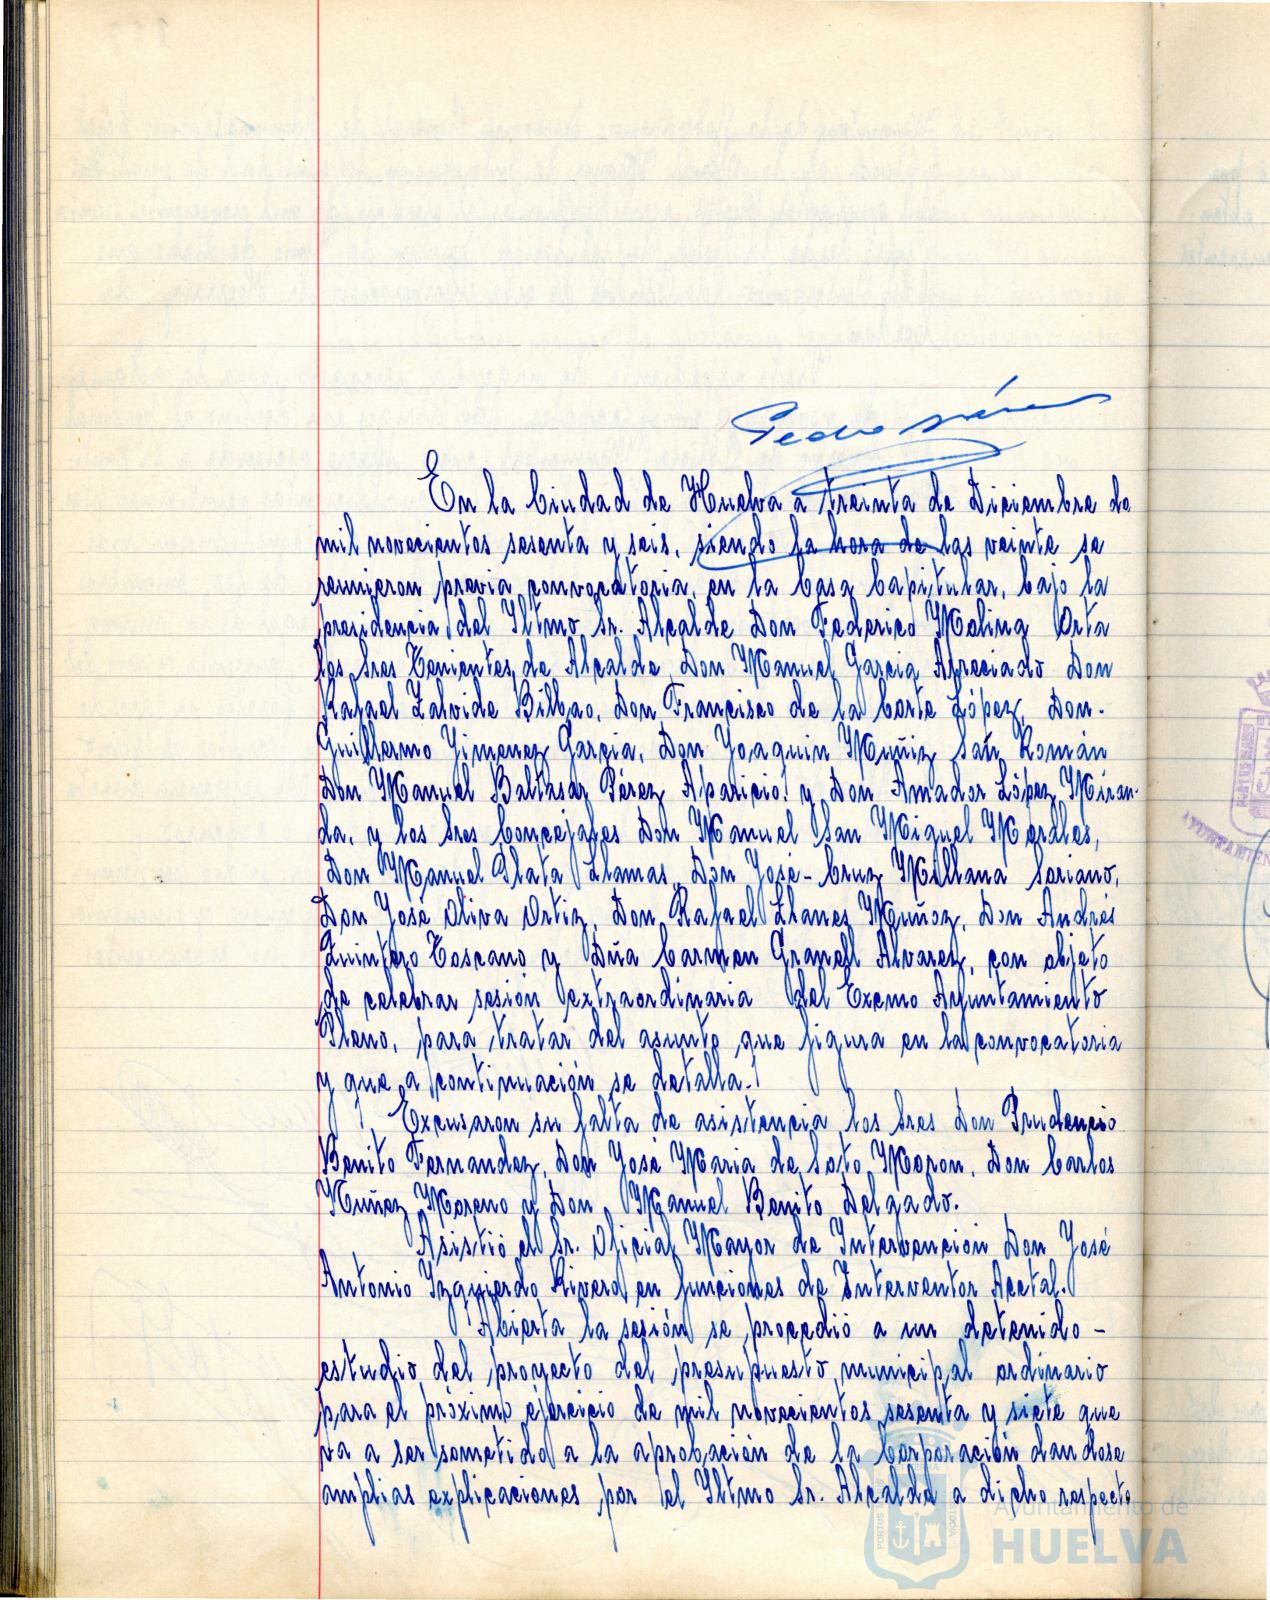 Pedro
En la Ciudad de Huelva a treinta de Diciembre de
mil novecientos sesenta y seis, siendo la hora de las veinte se
reunieron previa convocatoria, en la Casa Capitular, bajo la
presidencia del Iltmo Sr. Alcalde Don Federico Molina Orta
los Sres Tenientes de Alcalde, Don Manuel Garcia Apreciado Don
Rafael Zalvide Bilbao, Don Francisco de la Corte López, Don.
Guillermo Jimenez Garcia, Don Joaquin Muñiz San Román
Don Manuel Baltasar Pérez Aparicio y Don Amador López Miran-
da, y los Sres Concejales Don Manuel San Miguel Morales,
Don Manuel Plata Llamas, Don José-Cruz Mallana Soriano,
Don José Oliva Ortiz, Don Rafael Llanes Muñoz, Don Andrés
Quintero Toscano y Dña Carmen Granell Alvarez, con objeto
de celebrar sesión extraordinaria del Excmo Ayuntamiento
Pleno, para tratar del asunto que figura en la convocatoria
y que a continuación se detalla.
Excusaron su falta de asistencia los Sres Don Prudencio
Benito Fernandez, Don José Maria de Soto Moron, Don Carlos
Muñoz Moreno y Don Manuel Benito Delgado.
Asistió el Sr. Oficial Mayor de Intervención Don José
Antonio Izquierdo Rivero en funciones de Interventor Acctal.
Abierta la sesión se procedió a un detenido -
estudio del proyecto del presupuesto municipal ordinario
para el próximo ejercicio de mil novecientos sesenta y siete que
va a ser sometido a la aprobación de la Corporación dandose
amplias explicaciones por el Iltmo Sr. Alcalde a dicho respecto
Ayuntamiento de
HUELVA